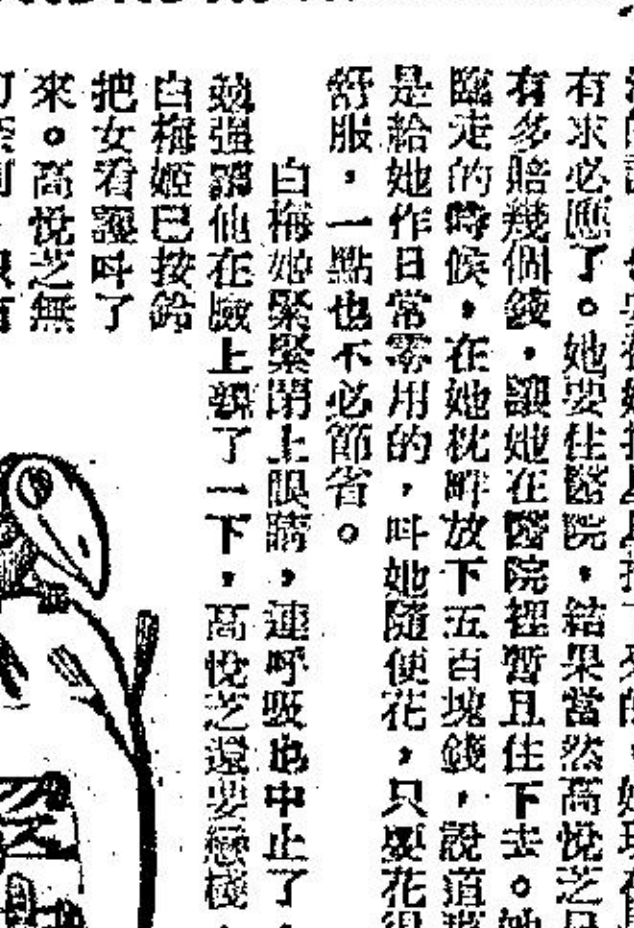 有求必應了。她要住醫院，結果當然高悅之
有多賠幾個錢，讓她在醫院裡暫且住下去。她
臨走的時候，在她枕畔放下五百塊錢，說道
是給她作日常零用的，叫她隨便花，只要花得
舒服，一點也不必節省。
白梅姬緊緊閉上眼睛，連呼吸也中止了，
勉强讓他在臉上親了一下，高悅之還要戀棧，
白梅姬已按鈴
把女看護呌了
來。高悅之無